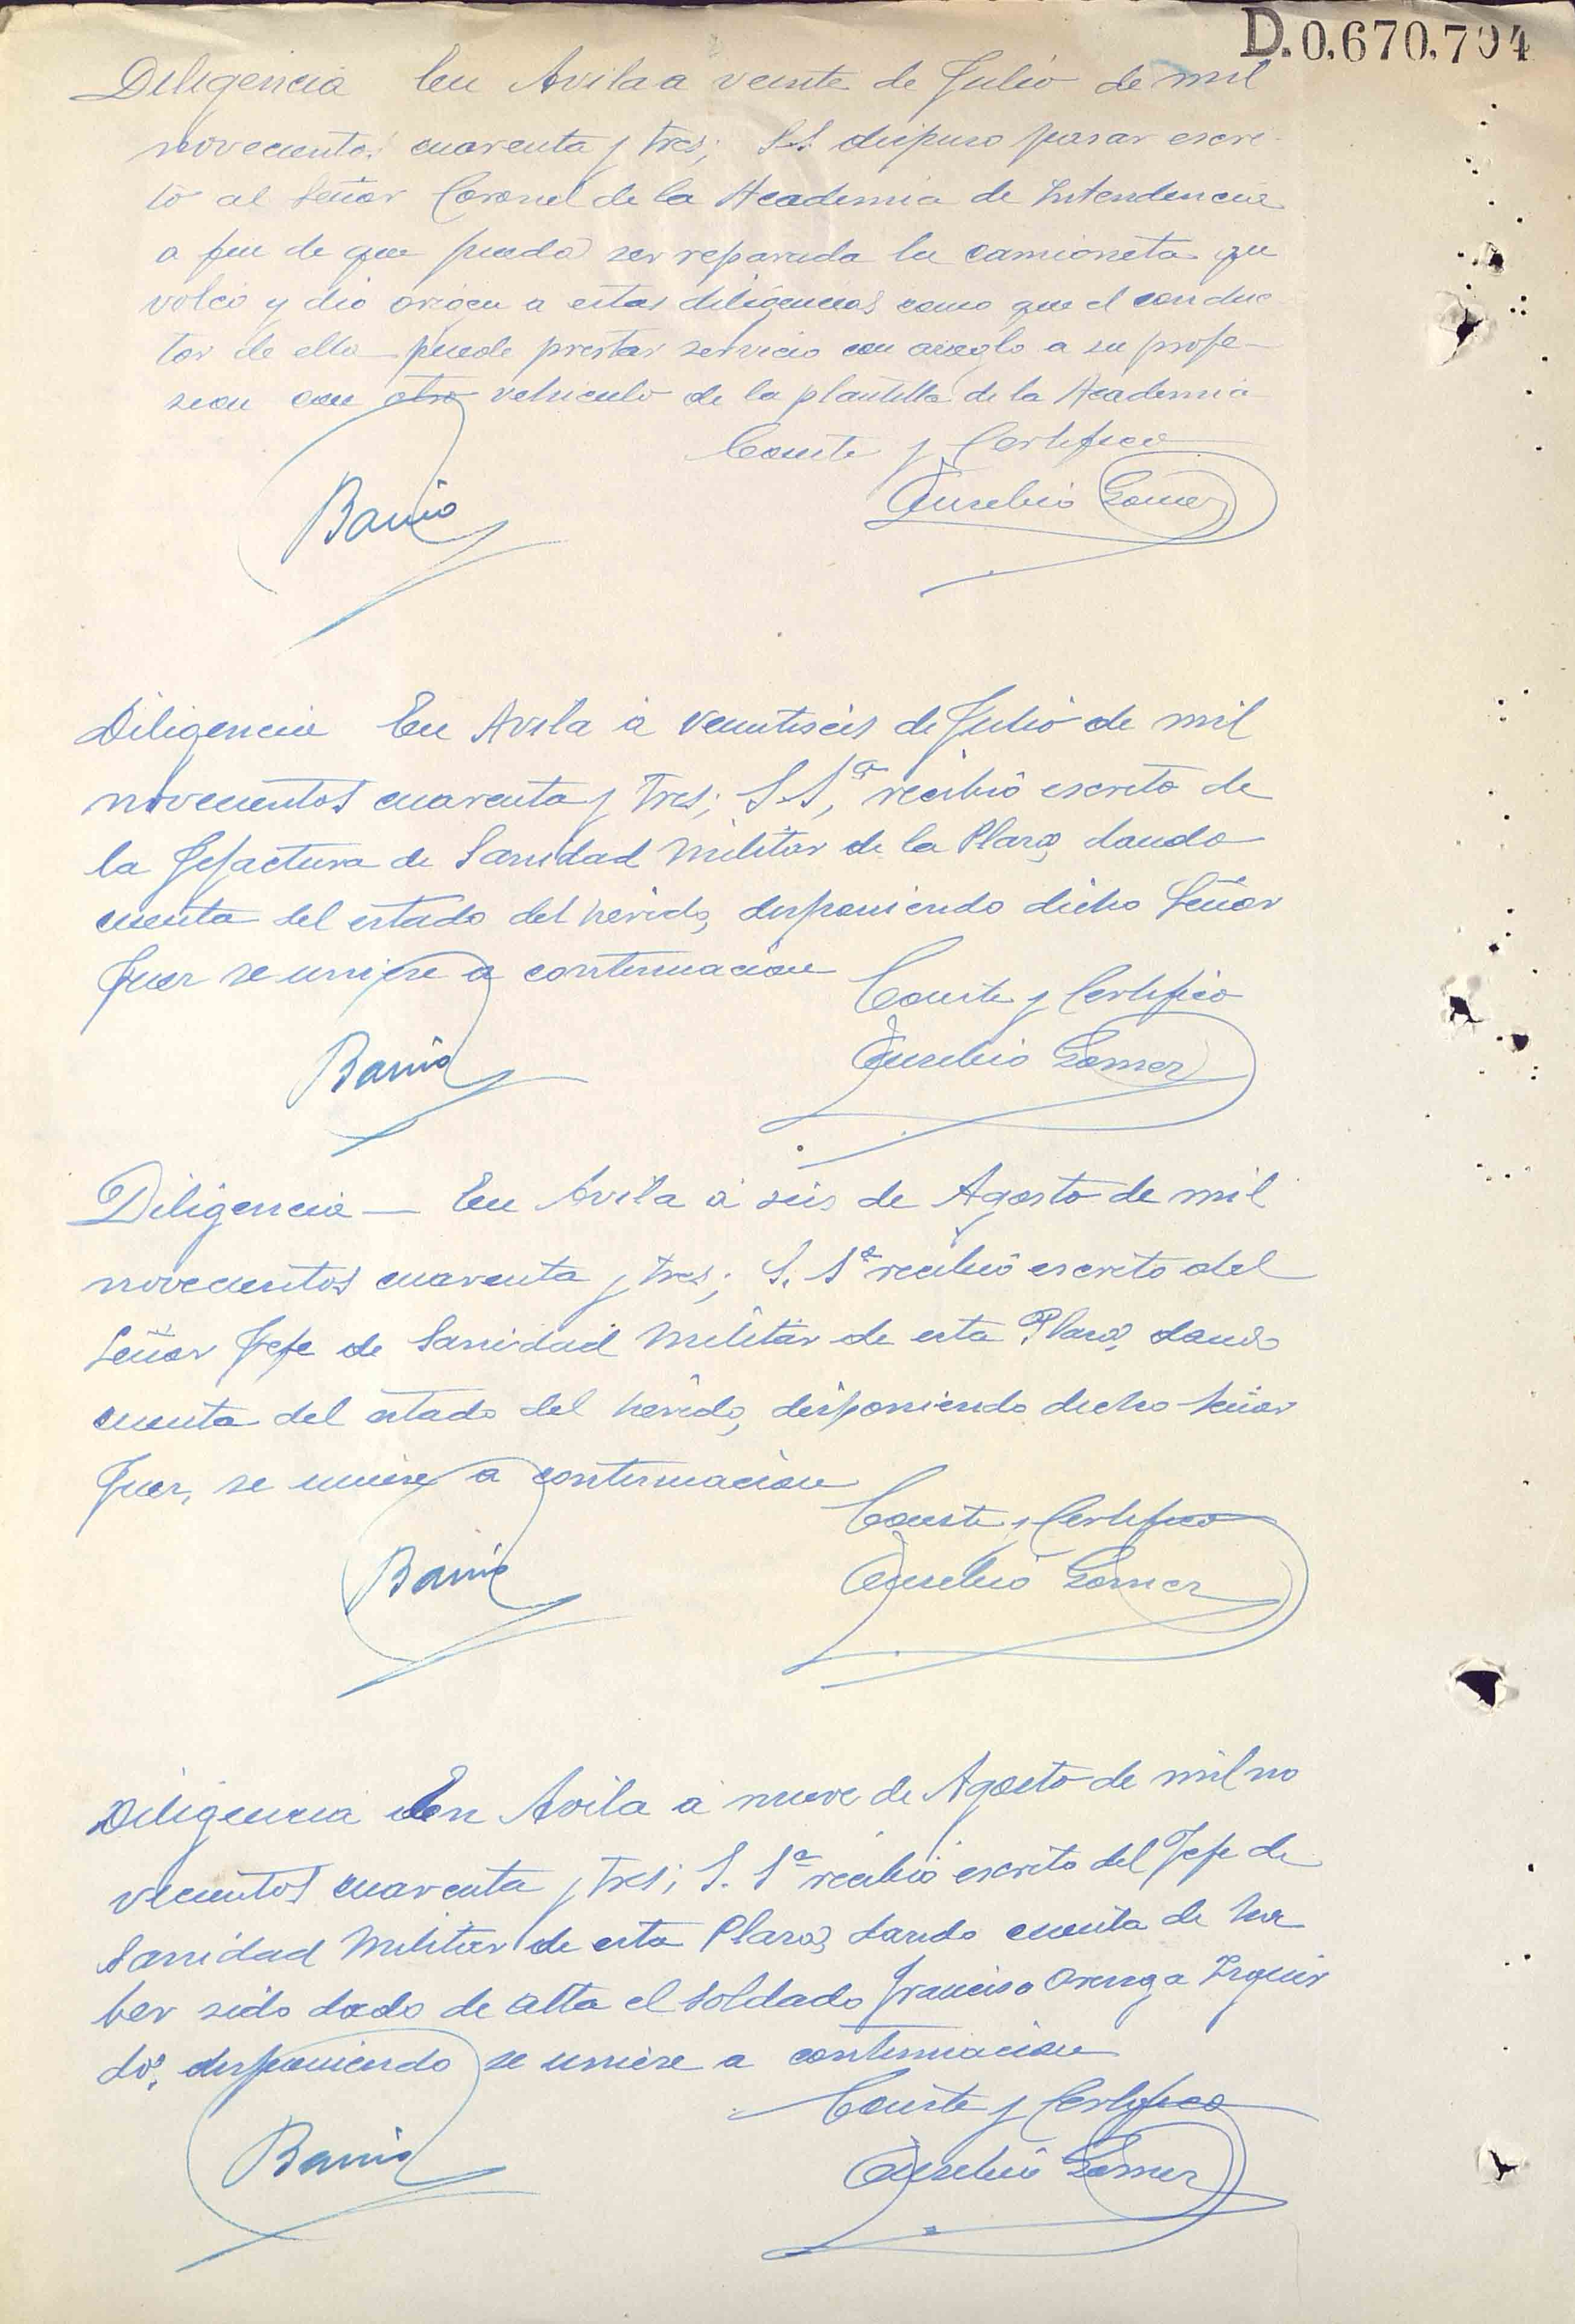 D.0,670,704
Diligencia En Avila a veinte de Julio de mil
novecientos cuarenta y tres; S.S. dispuso pasar escri-
to al Señor Coronel de la Academia de Intendencia
a fin de que pueda ser reparada la camioneta que
volcó y dio origen a estas diligencias como que el conduc
tor de ella puede prestar servicio con arreglo a su profe-
sion con otro vehiculo de la plantilla de la Academia
Conste y Certifico
Barrio Eusebio Gomez
Diligencia En Avila a veintiseis de Julio de mil
novecientos cuarenta y tres; S.Sª, recibió escrito de
la Jefactura de Sanidad Militar de la Plaza, dando
cuenta del estado del herido, disponiendo dicho Señor
Juez se uniese a continuacion
Conste y Certifico
Barrio Eusebio Gomez
Diligencia — En Avila a seis de Agosto de mil
novecientos cuarenta y tres; S. Sª recibió escrito del
Señor Jefe de Sanidad Militar de esta Plaza, dando
cuenta del estado del herido, disponiendo dicho Señor
Juez, se uniese a continuacion
Conste y Certifico
Barrio Eusebio Gomez
Diligencia En Avila a nueve de Agosto de mil no
vecientos cuarenta y tres; S. Sª recibió escrito del Jefe de
Sanidad Militar de esta Plaza, dando cuenta de ha
ber sido dado de alta el soldado Francisco Orenga
do, disponiendo se uniese a continuacion
Conste y Certifico
Barrio Eusebio Gomez